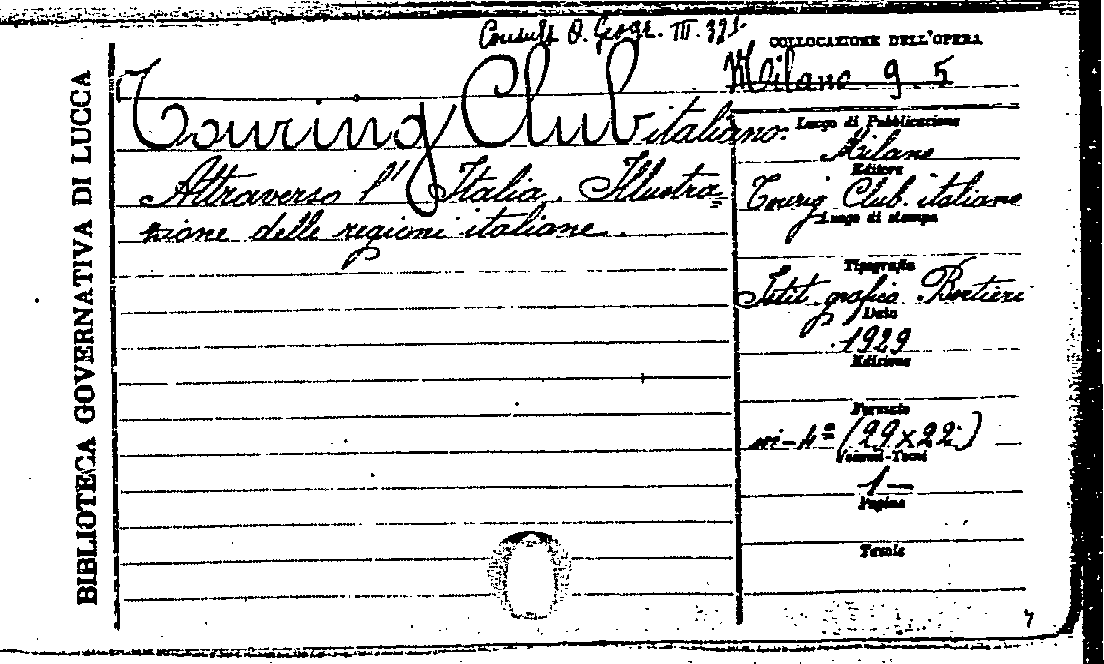 BIBLIOTECA GOVERNATIVA DI LUCCA
Consult. O. Geogr. III. 321.
Touring Club italiano.
Attraverso l'Italia. Illustra=
zione delle regioni italiane.
COLLOCAZIONE DELL'OPERA
Milano 9. 5
Luogo di Pubblicazione
Milano
Editore
Tourig Club. italiano
Luogo di stampa
Tipografia
Istit. grafico Bertieri
Data
1929
Edizione
Formato
in-4º (29x22)
Volumi-Tomi
1—
Pagine
Tavole